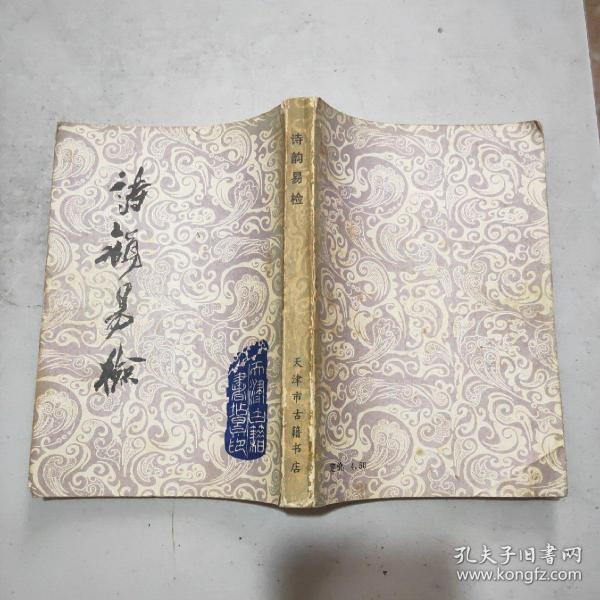 詩韻易檢
天津古籍
書店影印
诗韵易检
天津市古籍书店
定价 4.50
孔夫子旧书网
www.kongfz.com